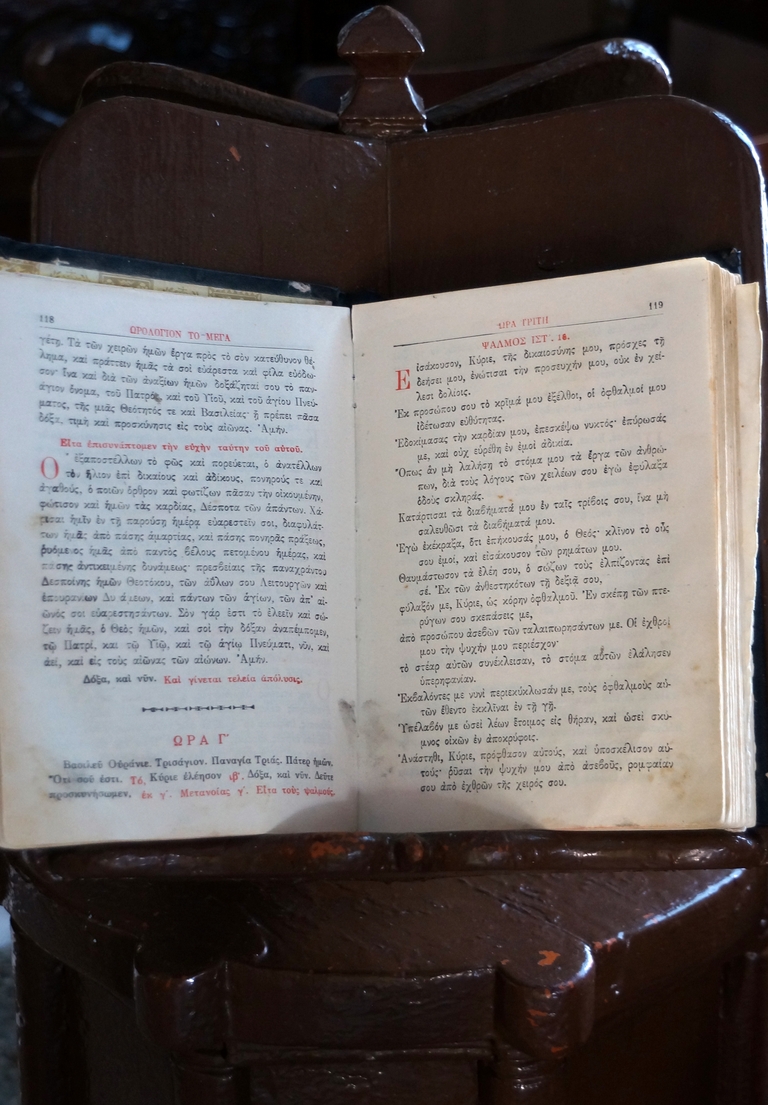 118
ΩΡΟΛΟΓΙΟΝ ΤΟ ΜΕΓΑ
γέτη. Τὰ τῶν χειρῶν ἡμῶν ἔργα πρὸς τὸ σὸν κατεύθυνον θέ-
λημα, καὶ πράττειν ἡμᾶς τὰ σοὶ εὐάρεστα καὶ φίλα εὐόδω-
σον· ἵνα καὶ διὰ τῶν ἀναξίων ἡμῶν δοξάζηταί σου τὸ παν-
άγιον ὄνομα, τοῦ Πατρὸς, καὶ τοῦ Υἱοῦ, καὶ τοῦ ἁγίου Πνεύ-
ματος, τῆς μιᾶς Θεότητός τε καὶ Βασιλείας· ᾗ πρέπει πᾶσα
δόξα, τιμὴ καὶ προσκύνησις εἰς τοὺς αἰῶνας. Ἀμήν.
Εἶτα ἐπισυνάπτομεν τὴν εὐχὴν ταύτην τοῦ αὐτοῦ.
Ὁ ἐξαποστέλλων τὸ φῶς καὶ πορεύεται, ὁ ἀνατέλλων
τὸν ἥλιον ἐπὶ δικαίους καὶ ἀδίκους, πονηρούς τε καὶ
ἀγαθούς, ὁ ποιῶν ὄρθρον καὶ φωτίζων πᾶσαν τὴν οἰκουμένην,
φώτισον καὶ ἡμῶν τὰς καρδίας, Δέσποτα τῶν ἁπάντων. Χά-
ρισαι ἡμῖν ἐν τῇ παρούσῃ ἡμέρᾳ εὐαρεστεῖν σοι, διαφυλάτ-
των ἡμᾶς ἀπὸ πάσης ἁμαρτίας, καὶ πάσης πονηρᾶς πράξεως,
ῥυόμενος ἡμᾶς ἀπὸ παντὸς βέλους πετομένου ἡμέρας, καὶ
πάσης ἀντικειμένης δυνάμεως· πρεσβείαις τῆς παναχράντου
Δεσποίνης ἡμῶν Θεοτόκου, τῶν ἀΰλων σου Λειτουργῶν καὶ
ἐπουρανίων Δυνάμεων, καὶ πάντων τῶν ἁγίων, τῶν ἀπ' αἰ-
ῶνός σοι εὐαρεστησάντων. Σὸν γάρ ἐστι τὸ ἐλεεῖν καὶ σώ-
ζειν ἡμᾶς, ὁ Θεὸς ἡμῶν, καὶ σοὶ τὴν δόξαν ἀναπέμπομεν,
τῷ Πατρί, καὶ τῷ Υἱῷ, καὶ τῷ ἁγίῳ Πνεύματι, νῦν, καὶ
ἀεί, καὶ εἰς τοὺς αἰῶνας τῶν αἰώνων. Ἀμήν.
Δόξα, καὶ νῦν. Καὶ γίνεται τελεία ἀπόλυσις.
ΩΡΑ Γ΄
Βασιλεῦ Οὐράνιε. Τρισάγιον. Παναγία Τριάς. Πάτερ ἡμῶν.
Ὅτι σοῦ ἐστι. Τό, Κύριε ἐλέησον ιβ΄. Δόξα, καὶ νῦν. Δεῦτε
προσκυνήσωμεν, ἐκ γ΄. Μετανοίας γ΄. Εἶτα τοὺς ψαλμούς.
119
ΩΡΑ ΤΡΙΤΗ
ΨΑΛΜΟΣ ΙΣΤ΄. 16.
Εἰσάκουσον, Κύριε, τῆς δικαιοσύνης μου, πρόσχες τῇ
δεήσει μου, ἐνώτισαι τὴν προσευχήν μου, οὐκ ἐν χεί-
λεσι δολίοις.
Ἐκ προσώπου σου τὸ κρῖμά μου ἐξέλθοι, οἱ ὀφθαλμοί μου
ἰδέτωσαν εὐθύτητας.
Ἐδοκίμασας τὴν καρδίαν μου, ἐπεσκέψω νυκτός· ἐπύρωσάς
με, καὶ οὐχ εὑρέθη ἐν ἐμοὶ ἀδικία.
Ὅπως ἂν μὴ λαλήσῃ τὸ στόμα μου τὰ ἔργα τῶν ἀνθρώ-
πων, διὰ τοὺς λόγους τῶν χειλέων σου ἐγὼ ἐφύλαξα
ὁδοὺς σκληράς.
Κατάρτισαι τὰ διαβήματά μου ἐν ταῖς τρίβοις σου, ἵνα μὴ
σαλευθῶσι τὰ διαβήματά μου.
Ἐγὼ ἐκέκραξα, ὅτι ἐπήκουσάς μου, ὁ Θεός· κλῖνον τὸ οὖς
σου ἐμοί, καὶ εἰσάκουσον τῶν ῥημάτων μου.
Θαυμάστωσον τὰ ἐλέη σου, ὁ σώζων τοὺς ἐλπίζοντας ἐπὶ
σέ. Ἐκ τῶν ἀνθεστηκότων τῇ δεξιᾷ σου,
φύλαξόν με, Κύριε, ὡς κόρην ὀφθαλμοῦ. Ἐν σκέπῃ τῶν πτε-
ρύγων σου σκεπάσεις με,
ἀπὸ προσώπου ἀσεβῶν τῶν ταλαιπωρησάντων με. Οἱ ἐχθροί
μου τὴν ψυχήν μου περιέσχον·
τὸ στέαρ αὐτῶν συνέκλεισαν, τὸ στόμα αὐτῶν ἐλάλησεν
ὑπερηφανίαν.
Ἐκβαλόντες με νυνὶ περιεκύκλωσάν με, τοὺς ὀφθαλμοὺς αὐ-
τῶν ἔθεντο ἐκκλῖναι ἐν τῇ γῇ.
Ὑπέλαβόν με ὡσεὶ λέων ἕτοιμος εἰς θήραν, καὶ ὡσεὶ σκύ-
μνος οἰκῶν ἐν ἀποκρύφοις.
Ἀνάστηθι, Κύριε, πρόφθασον αὐτούς, καὶ ὑποσκέλισον αὐ-
τούς· ῥῦσαι τὴν ψυχήν μου ἀπὸ ἀσεβοῦς, ῥομφαίαν
σου ἀπὸ ἐχθρῶν τῆς χειρός σου.